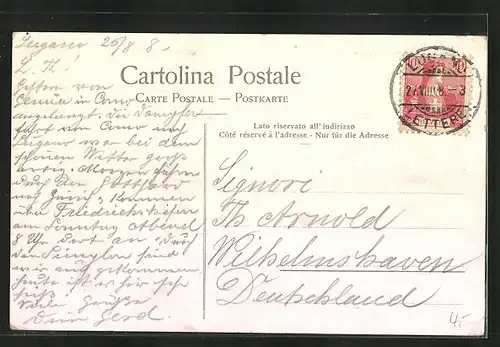 Lugano 26/8 8.
L. Th.!
Gestern von
Genua in Como
angelangt. Die Dampfer
fahrt von Como nach
Lugano war bei dem
schönen Wetter groß
artig. Morgen fahren
durch den Gotthard
nach Zürich, kommen
über Friedrichshafen
am Sonntag Abend
8 Uhr dort an. Durch
den sind
wir gut gekommen
heute ist es hier sehr
heiß
Viele Grüße
Dein Gerd.
Cartolina Postale
CARTE POSTALE — POSTKARTE
Lato riservato all'indirizzo
Côté réservé à l'adresse - Nur für die Adresse
LUGANO
27.VIII.08 - 3
LETTERE
10
Signori
Th Arnold
Wilhelmshaven
Deutschland
4,-